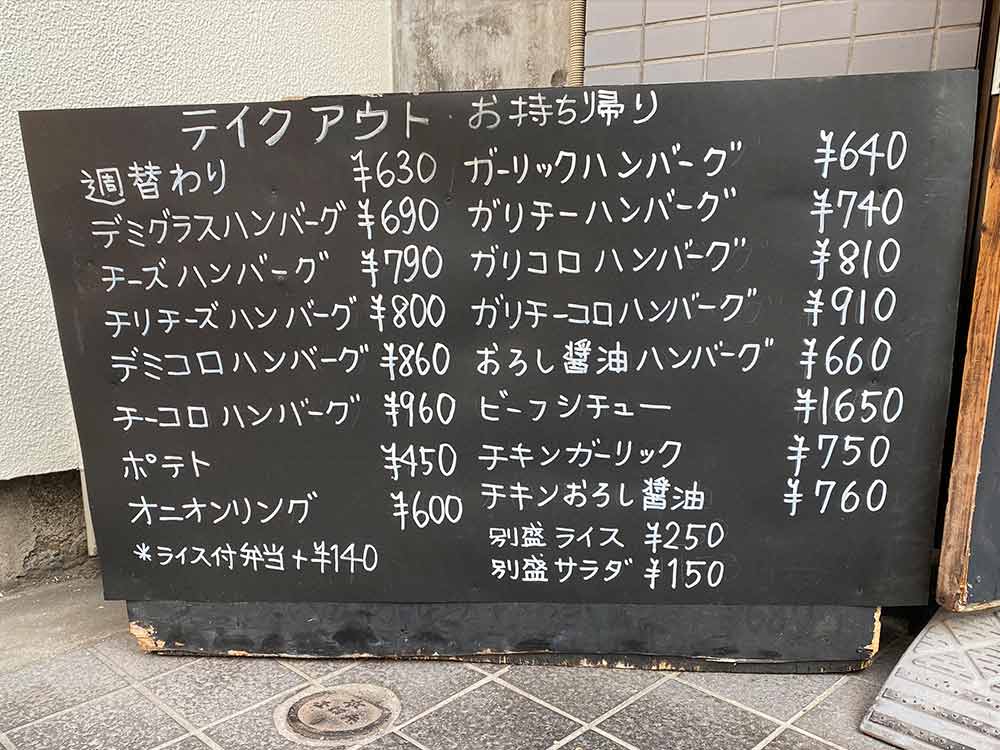 テイクアウト・お持ち帰り
週替わり ¥630
デミグラスハンバーグ ¥690
チーズハンバーグ ¥790
チリチーズハンバーグ ¥800
デミコロハンバーグ ¥860
チーコロハンバーグ ¥960
ポテト ¥450
オニオンリング ¥600
*ライス付弁当+¥140
ガーリックハンバーグ ¥640
ガリチーハンバーグ ¥740
ガリコロハンバーグ ¥810
ガリチーコロハンバーグ ¥910
おろし醤油ハンバーグ ¥660
ビーフシチュー ¥1650
チキンガーリック ¥750
チキンおろし醤油 ¥760
別盛ライス ¥250
別盛サラダ ¥150